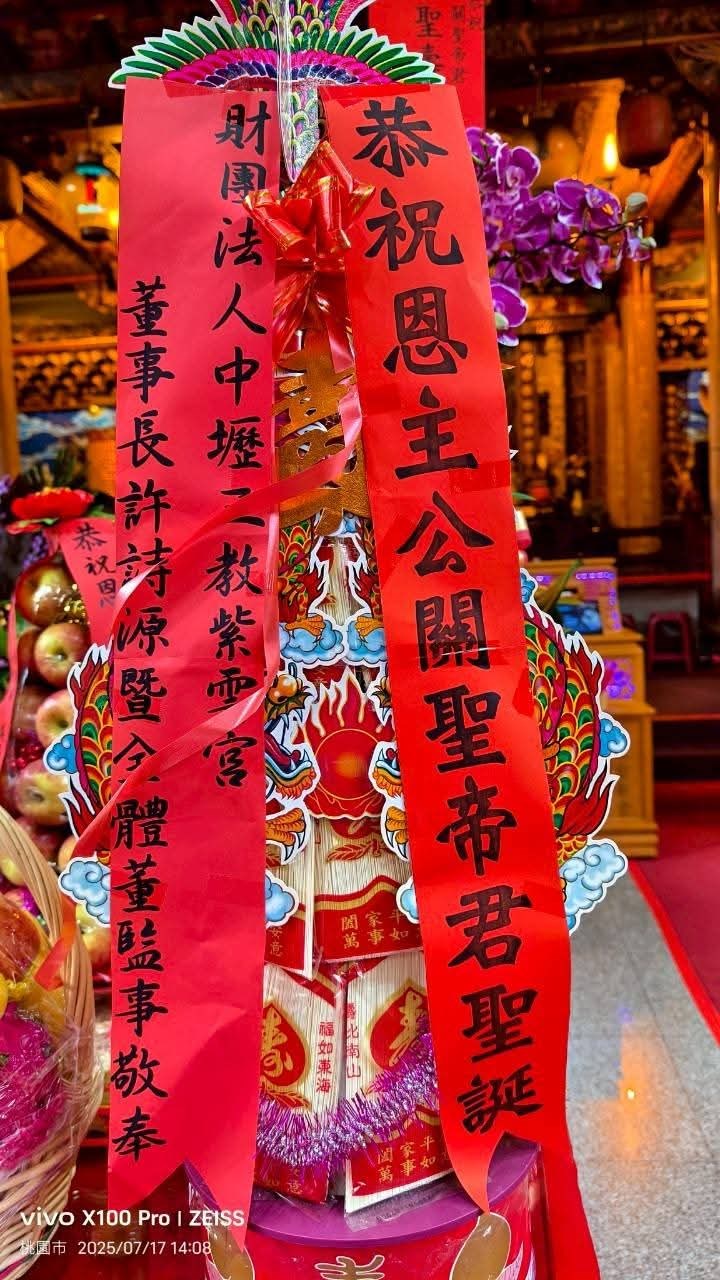 恭祝恩主公關聖帝君聖誕
財團法人中壢三教紫雲宮
董事長許詩源暨全體董監事敬奉
關聖帝君
恭祝恩
闔家平
萬事如
福如東海
比南山
壽
壽
闔家平
萬事如
vivo X100 Pro | ZEISS
桃園市 2025/07/17 14:08